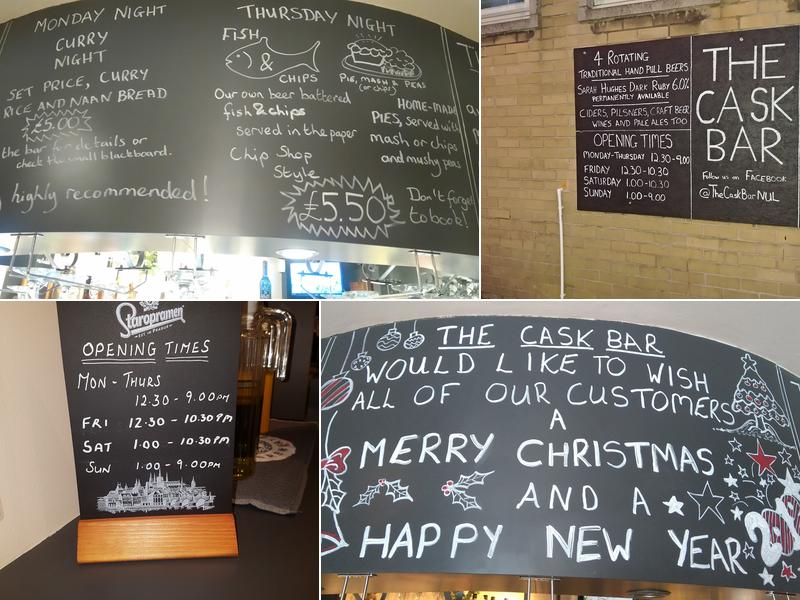 MONDAY NIGHT
CURRY
NIGHT
SET PRICE, CURRY
RICE AND NAAN BREAD
£5.00
the bar for details or
check the small blackboard.
highly recommended!
THURSDAY NIGHT
FISH
&
CHIPS
PIE, MASH & PEAS
(or chips)
Our own beer battered
fish & chips
served in the paper
Chip Shop
Style
£5.50
HOME-MADE
PIES, served with
mash or chips
and mushy peas
Don't forget
to book!
4 ROTATING
TRADITIONAL HAND PULL BEERS
SARAH HUGHES DARK RUBY 6.0%
PERMANENTLY AVAILABLE
CIDERS, PILSNERS, CRAFT BEER
WINES AND PALE ALES TOO
OPENING TIMES
MONDAY-THURSDAY 12.30-9.00
FRIDAY 12.30-10.30
SATURDAY 1.00-10.30
SUNDAY 1.00-9.00
THE
CASK
BAR
Follow us on FACEBOOK
@TheCaskBarNUL
Staropramen
EST IN PRAGUE
OPENING TIMES
MON - THURS
12.30 - 9.00PM
FRI 12.30 - 10.30PM
SAT 1.00 - 10.30PM
SUN 1.00 - 9.00PM
THE CASK BAR
WOULD LIKE TO WISH
ALL OF OUR CUSTOMERS
A
MERRY CHRISTMAS
AND A
HAPPY NEW YEAR